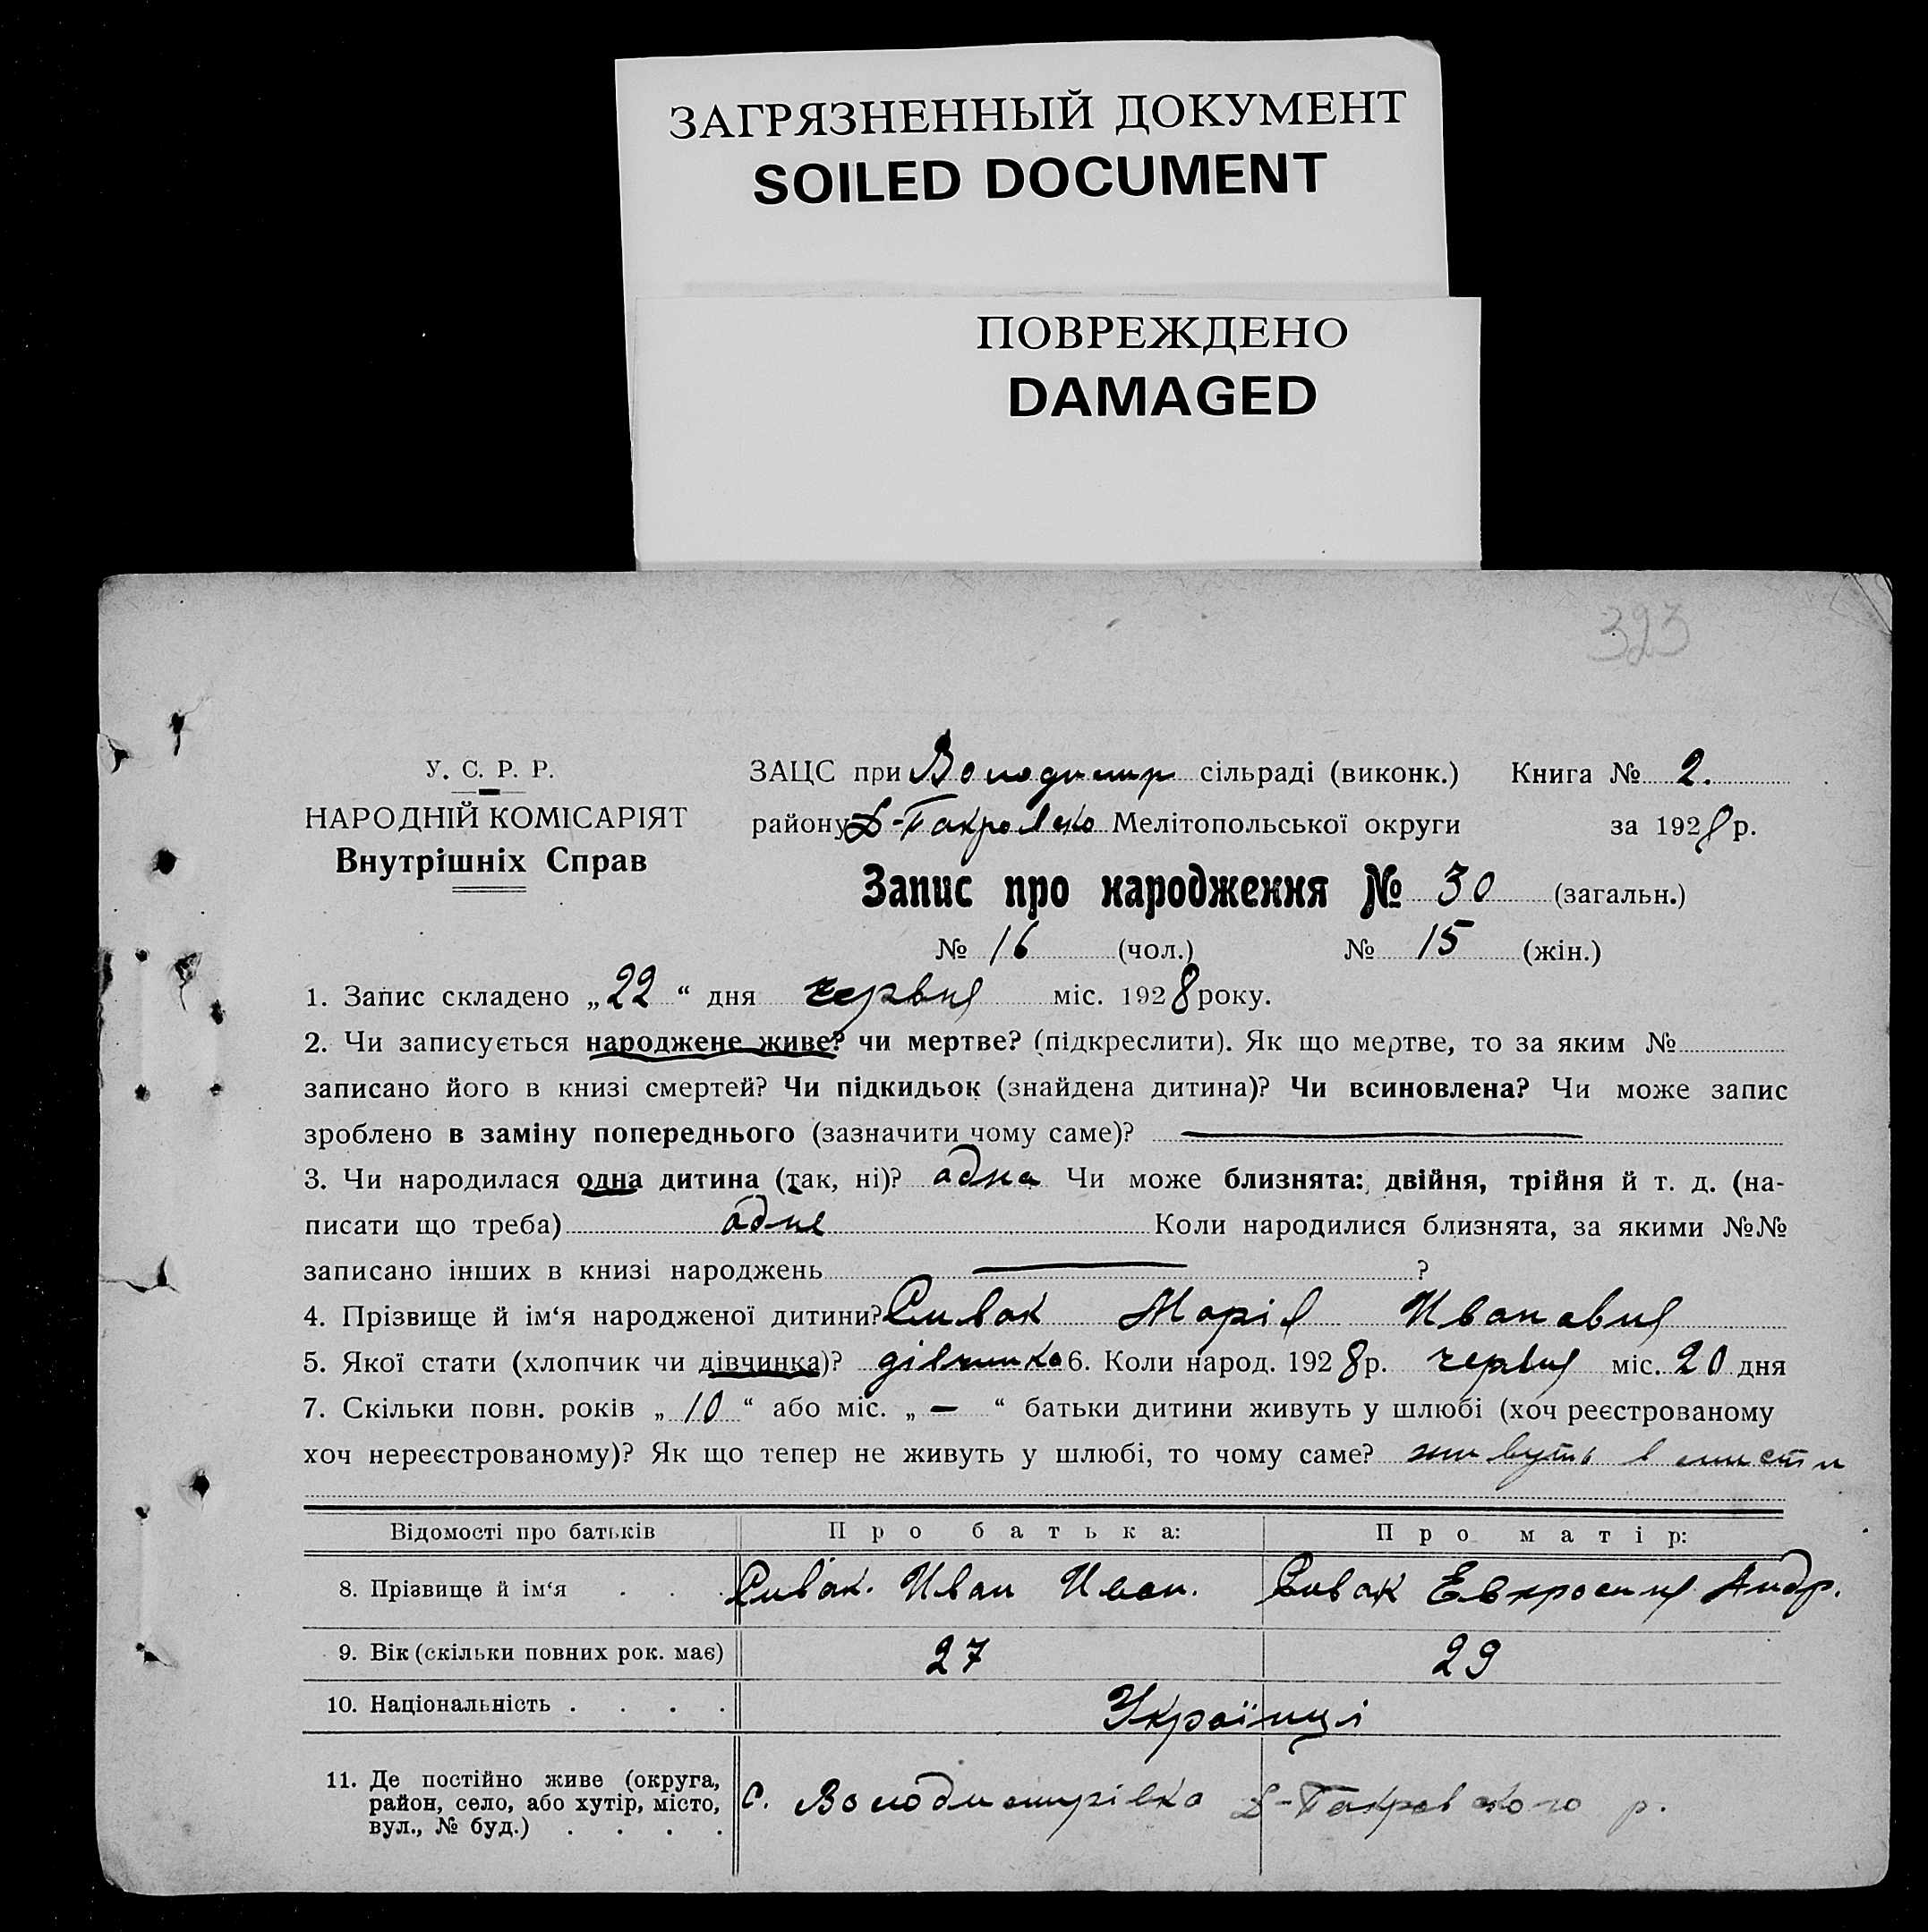 ЗАГРЯЗНЕННЫЙ ДОКУМЕНТ
SOILED DOCUMENT
ПОВРЕЖДЕНО
DAMAGED
323
У. С. Р. Р.
НАРОДНІЙ КОМІСАРІЯТ
Внутрішніх Справ
ЗАЦС при Володимир сільраді (виконк.) Книга № 2.
району Д-Покровско Мелітопольської округи за 1928 р.
Запис про народження № 30 (загальн.)
№ 16 (чол.) № 15 (жін.)
1. Запис складено „22“ дня червня міс. 1928 року.
2. Чи записується народжене живе? чи мертве? (підкреслити). Як що мертве, то за яким №
записано його в книзі смертей? Чи підкидьок (знайдена дитина)? Чи всиновлена? Чи може запис
зроблено в заміну попереднього (зазначити чому саме)? —
3. Чи народилася одна дитина (так, ні)? одна Чи може близнята: двійня, трійня й т. д. (на-
писати що треба) одне Коли народилися близнята, за якими №№
записано інших в книзі народжень — ?
4. Прізвище й ім‘я народженої дитини? Сивак Марія Ивановня
5. Якої стати (хлопчик чи дівчинка)? дівчинка 6. Коли народ. 1928 р. червня міс. 20 дня
7. Скільки повн. років „10“ або міс. „—“ батьки дитини живуть у шлюбі (хоч реєстрованому
хоч нереєстрованому)? Як що тепер не живуть у шлюбі, то чому саме? живуть в
Відомості про батьків Про батька: Про матір:
8. Прізвище й ім‘я . . . Сивак. Иван Иван. Сивак Евхросиня Андр.
9. Вік (скільки повних рок. має) 27 29
10. Національність . . . . Українці
11. Де постійно живе (округа,
район, село, або хутір, місто, с. Володимирівка Д-Покровского р.
вул., № буд.) . . . .